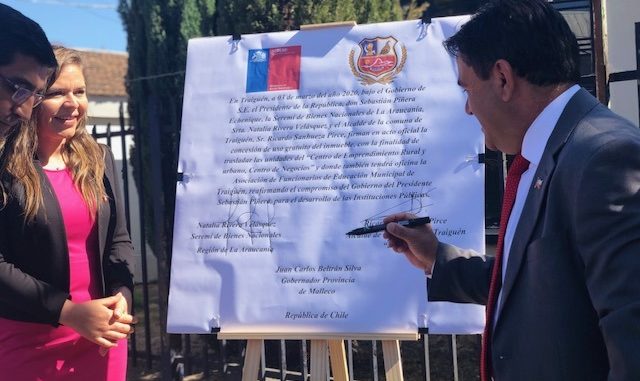 En Traiguén, a 03 de marzo del año 2020, bajo el Gobierno de
S.E. el Presidente de la República, don Sebastián Piñera
Echenique, la Seremi de Bienes Nacionales de La Araucanía,
Srta. Natalia Rivera Velásquez, y el Alcalde de la comuna de
Traiguén, Sr. Ricardo Sanhueza Pirce, firman en acto oficial la
concesión de uso gratuito del inmueble, con la finalidad de
trasladar las unidades del "Centro de Emprendimiento Rural y
urbano, Centro de Negocios" y donde también tendrá oficina la
Asociación de Funcionarios de Educación Municipal de
Traiguén, reafirmando el compromiso del Gobierno del Presidente
Sebastián Piñera, para el desarrollo de las Instituciones Públicas.
Natalia Rivera Velásquez Pirce
Seremi de Bienes Nacionales Alcalde de la Traiguén
Región de La Araucanía
Juan Carlos Beltrán Silva
Gobernador Provincia
de Malleco
República de Chile